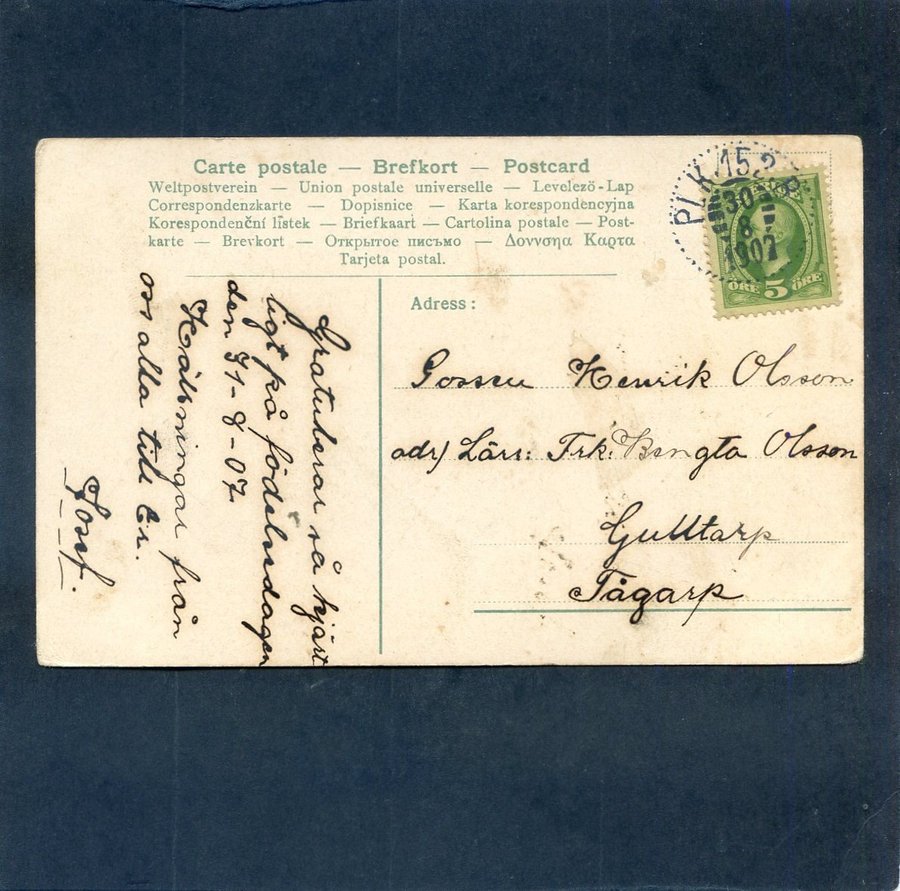 Carte postale — Brefkort — Postcard
Weltpostverein — Union postale universelle — Levelező-Lap
Correspondenzkarte — Dopisnice — Karta korespondencyjna
Korespondenční lístek — Briefkaart — Cartolina postale — Post-
karte — Brevkort — Открытое письмо — Δοννσηα Καρτα
Tarjeta postal.
PLK 15.2
30
8
1907
ÖRE 5 ÖRE
Adress:
Gossen Henrik Olsson
adr/ Lärs: Frk. Bengta Olsson
Gulltarp
Tågarp
Gratulerar så hjärt
ligt på födelsedagen
den 31-8-07.
Hälsningar från
oss alla till Er.
Josef.